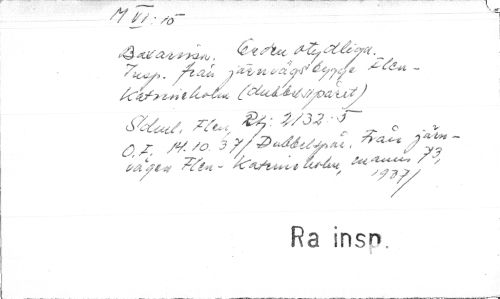 M VI:15
Basarvisn. Orden otydliga.
Insp. från järnvägsbygge Flen-
Katrineholm (dubbelspåret)
Sldml. Flen, Rtj: 2132:5
O.F. 14.10.37/ Dubbelspår. Från järn-
vägen Flen- Katrineholm, enamn 73,
1907/
Ra insp.